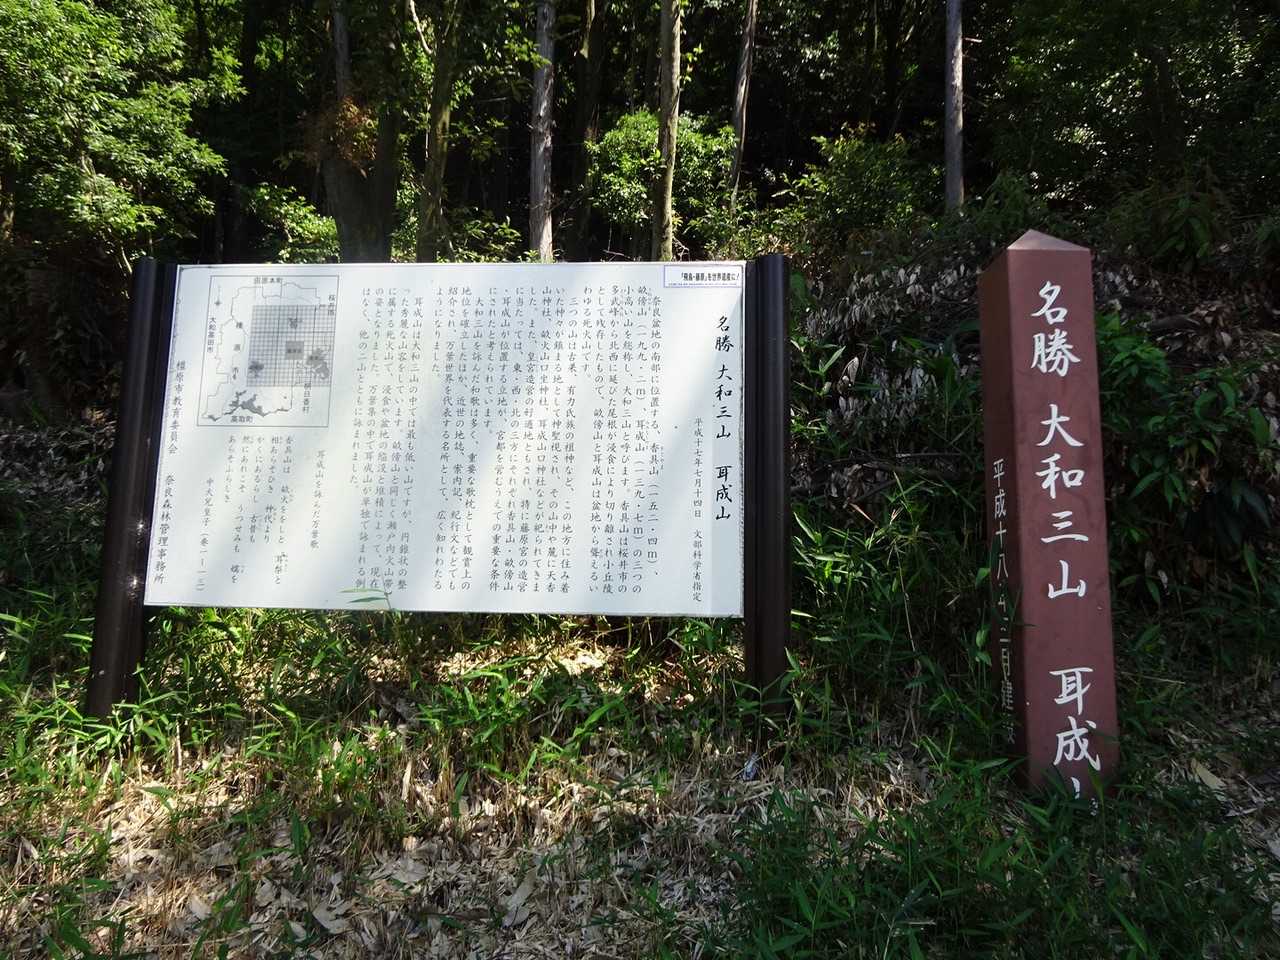 「飛鳥・藤原」を世界遺産に!
名勝 大和三山 耳成山
平成十七年七月十四日 文部科学省指定
奈良盆地の南部に位置する、香具山(一五二・四m)、
畝傍山(一九九・二m)、耳成山(一三九・七m)の三つの
小高い山を総称し、大和三山と呼びます。香具山は桜井市の
多武峰から北西に延びた尾根が浸食により切り離され小丘陵
として残存したもので、畝傍山と耳成山は盆地から聳えるい
わゆる死火山です。
三つの山は古来、有力氏族の祖神など、この地方に住み着
いた神々が鎮まる地として神聖視され、その山中や麓に天香
山神社、畝火山口坐神社、耳成山口神社などが祀られてきま
した。また、皇宮造営の好適地ともされ、特に藤原宮の造営
に当たっては、東・西・北の三方にそれぞれ香具山・畝傍山
・耳成山が位置する立地が、宮都を営むうえでの重要な条件
にされたと考えられています。
大和三山を詠んだ和歌は多く、重要な歌枕として観賞上の
地位を確立したほか、近世の地誌、案内記、紀行文などでも
紹介され、万葉世界を代表する名所として、広く知れわたる
ようになりました。
耳成山は大和三山の中では最も低い山ですが、円錐状の整
った秀麗な山容をしています。畝傍山と同じく瀬戸内火山帯
に属する死火山で、浸食や盆地の陥没と堆積によって、現在
の姿となりました。万葉集の中で耳成山が単独で詠まれる例
はなく、他の二山とともに詠まれました。
耳成山を詠んだ万葉歌
香具山は 畝火ををしと 耳梨と
相あらそひき 神代より
かくにあるらし 古昔も
然にあれこそ うつせみも 嬬を
あらそふらしき
中大兄皇子(巻一-一三)
田原本町
桜井市
大和高田市
橿原市
明日香村
高取町
橿原市教育委員会 奈良森林管理事務所
名勝 大和三山 耳成山
平成十八年二月建